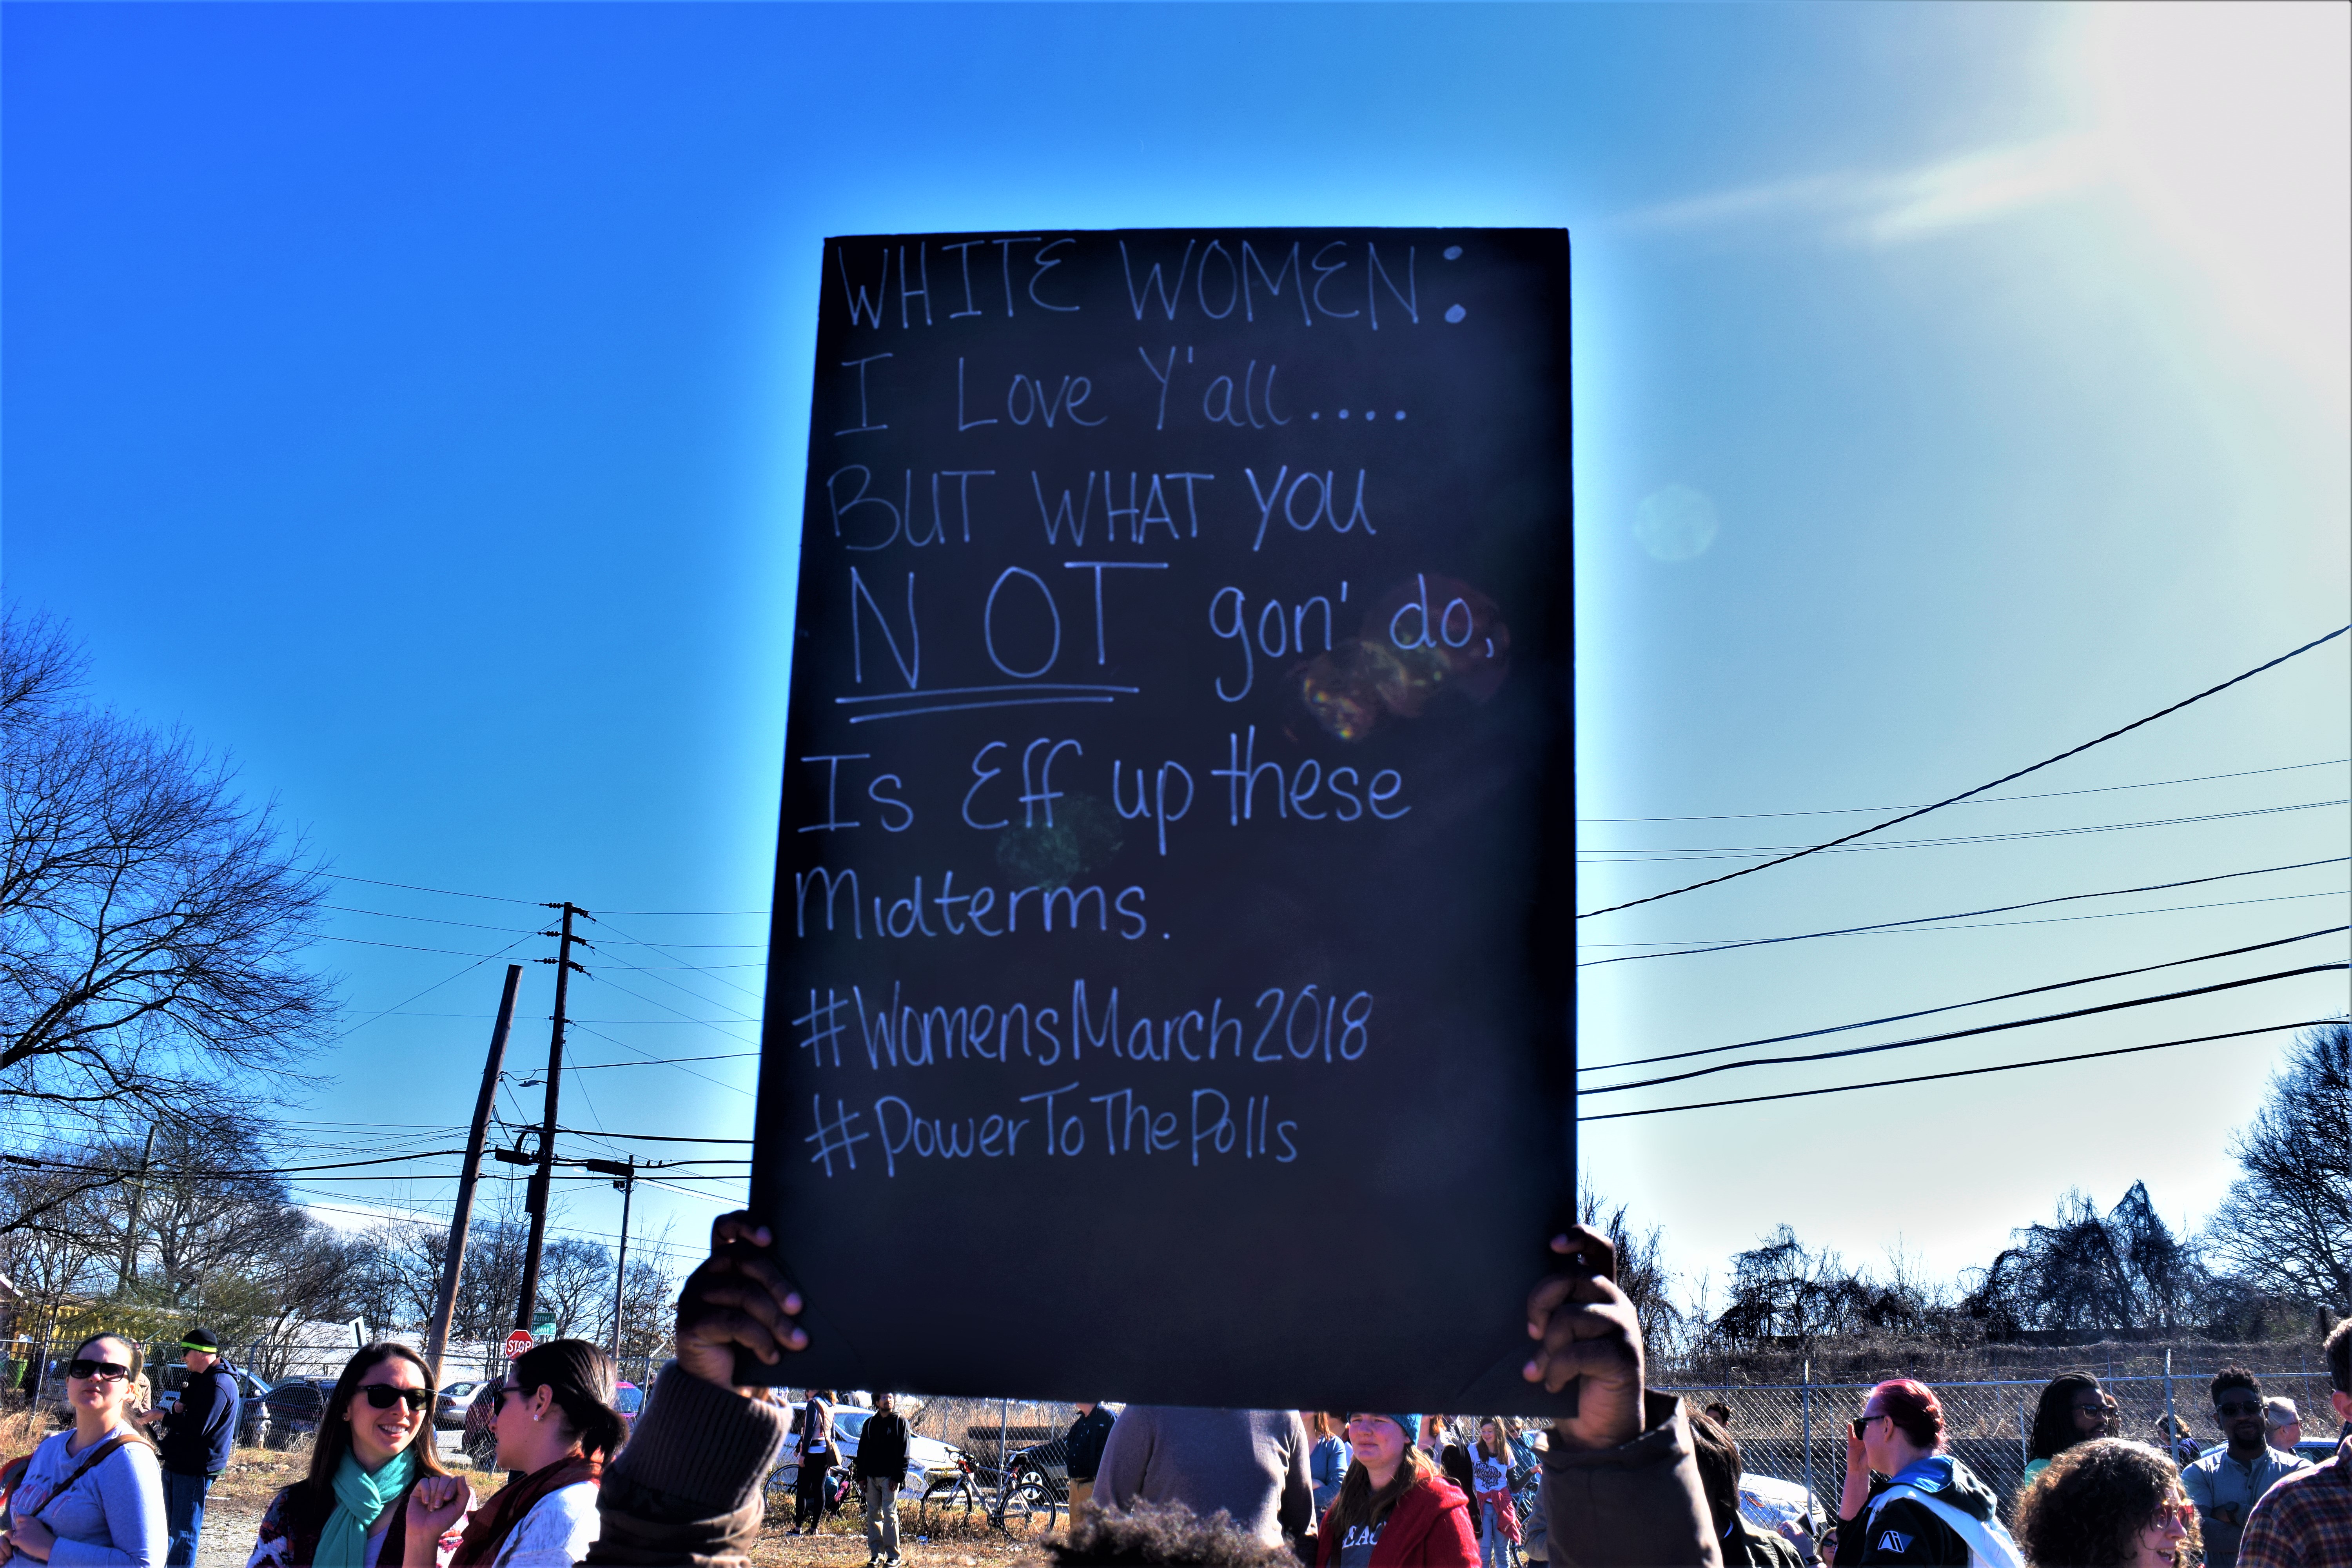 WHITE WOMEN:
I Love Y'all....
BUT WHAT YOU
NOT gon' do,
Is Eff up these
Midterms.
#WomensMarch2018
#PowerToThePolls
STOP